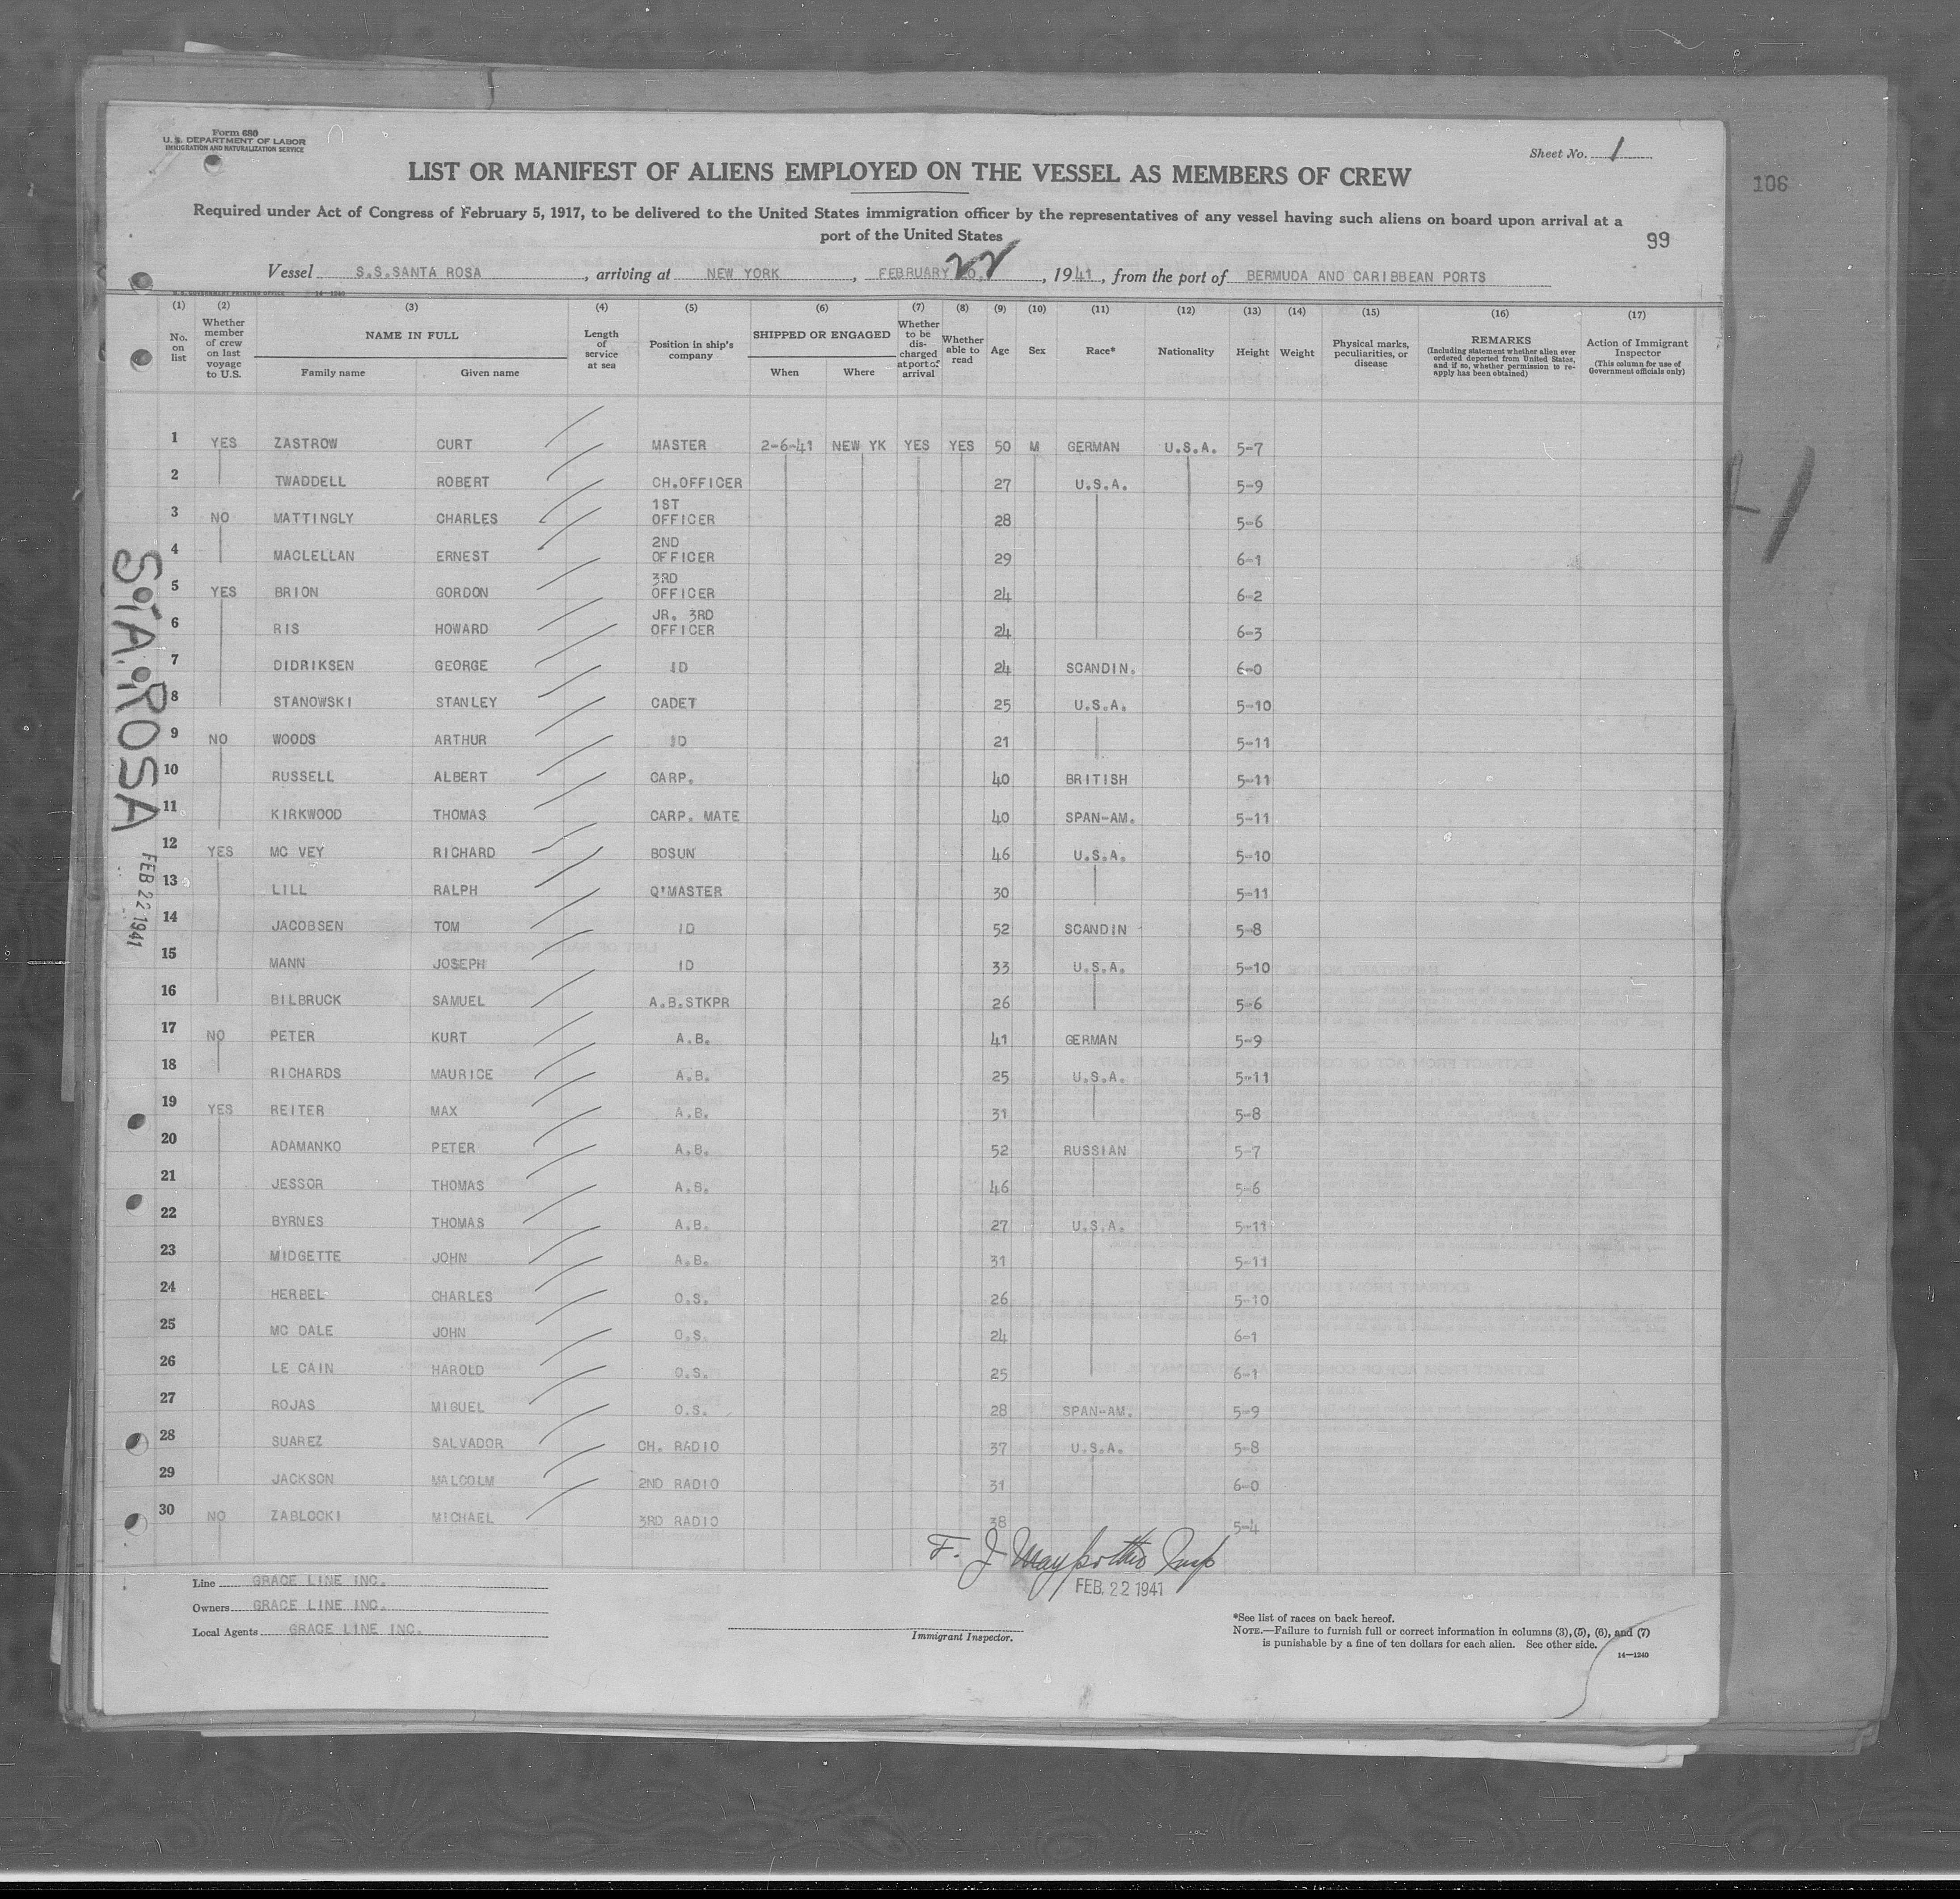 Form 680
U. S. DEPARTMENT OF LABOR
IMMIGRATION AND NATURALIZATION SERVICE
Sheet No. 1
LIST OR MANIFEST OF ALIENS EMPLOYED ON THE VESSEL AS MEMBERS OF CREW
106
Required under Act of Congress of February 5, 1917, to be delivered to the United States immigration officer by the representatives of any vessel having such aliens on board upon arrival at a
port of the United States
99
Vessel S.S.SANTA ROSA, arriving at NEW YORK, FEBRUARY 22, 1941, from the port of BERMUDA AND CARIBBEAN PORTS
U. S. GOVERNMENT PRINTING OFFICE 14—1240
(1) (2) (3) (4) (5) (6) (7) (8) (9) (10) (11) (12) (13) (14) (15) (16) (17)
No. on list
Whether member of crew on last voyage to U.S.
NAME IN FULL
Family name Given name
Length of service at sea
Position in ship's company
SHIPPED OR ENGAGED
When Where
Whether to be discharged at port of arrival
Whether able to read
Age
Sex
Race*
Nationality
Height
Weight
Physical marks, peculiarities, or disease
REMARKS
(Including statement whether alien ever ordered deported from United States, and if so, whether permission to re-apply has been obtained)
Action of Immigrant Inspector
(This column for use of Government officials only)
1 YES ZASTROW CURT MASTER 2-6-41 NEW YK YES YES 50 M GERMAN U.S.A. 5-7
2 TWADDELL ROBERT CH.OFFICER 27 U.S.A. 5-9
3 NO MATTINGLY CHARLES 1ST OFFICER 28 5-6
4 MACLELLAN ERNEST 2ND OFFICER 29 6-1
5 YES BRION GORDON 3RD OFFICER 24 6-2
6 RIS HOWARD JR. 3RD OFFICER 24 6-3
7 DIDRIKSEN GEORGE ID 24 SCANDIN. 6-0
8 STANOWSKI STANLEY CADET 25 U.S.A. 5-10
9 NO WOODS ARTHUR ID 21 5-11
10 RUSSELL ALBERT CARP. 40 BRITISH 5-11
11 KIRKWOOD THOMAS CARP. MATE 40 SPAN-AM. 5-11
12 YES MC VEY RICHARD BOSUN 46 U.S.A. 5-10
13 LILL RALPH Q'MASTER 30 5-11
14 JACOBSEN TOM ID 52 SCANDIN 5-8
15 MANN JOSEPH ID 33 U.S.A. 5-10
16 BILBRUCK SAMUEL A.B.STKPR 26 5-6
17 NO PETER KURT A.B. 41 GERMAN 5-9
18 RICHARDS MAURICE A.B. 25 U.S.A. 5-11
19 YES REITER MAX A.B. 31 5-8
20 ADAMANKO PETER A.B. 52 RUSSIAN 5-7
21 JESSOR THOMAS A.B. 46 5-6
22 BYRNES THOMAS A.B. 27 U.S.A. 5-11
23 MIDGETTE JOHN A.B. 31 5-11
24 HERBEL CHARLES O.S. 26 5-10
25 MC DALE JOHN O.S. 24 6-1
26 LE CAIN HAROLD O.S. 25 6-1
27 ROJAS MIGUEL O.S. 28 SPAN-AM. 5-9
28 SUAREZ SALVADOR CH. RADIO 37 U.S.A. 5-8
29 JACKSON MALCOLM 2ND RADIO 31 6-0
30 NO ZABLOCKI MICHAEL 3RD RADIO 38 5-4
STA. ROSA
FEB 22 1941
F. J.
FEB. 22 1941
Line GRACE LINE INC.
Owners GRACE LINE INC.
Local Agents GRACE LINE INC.
Immigrant Inspector.
*See list of races on back hereof.
NOTE.—Failure to furnish full or correct information in columns (3), (5), (6), and (7)
is punishable by a fine of ten dollars for each alien. See other side.
14—1240